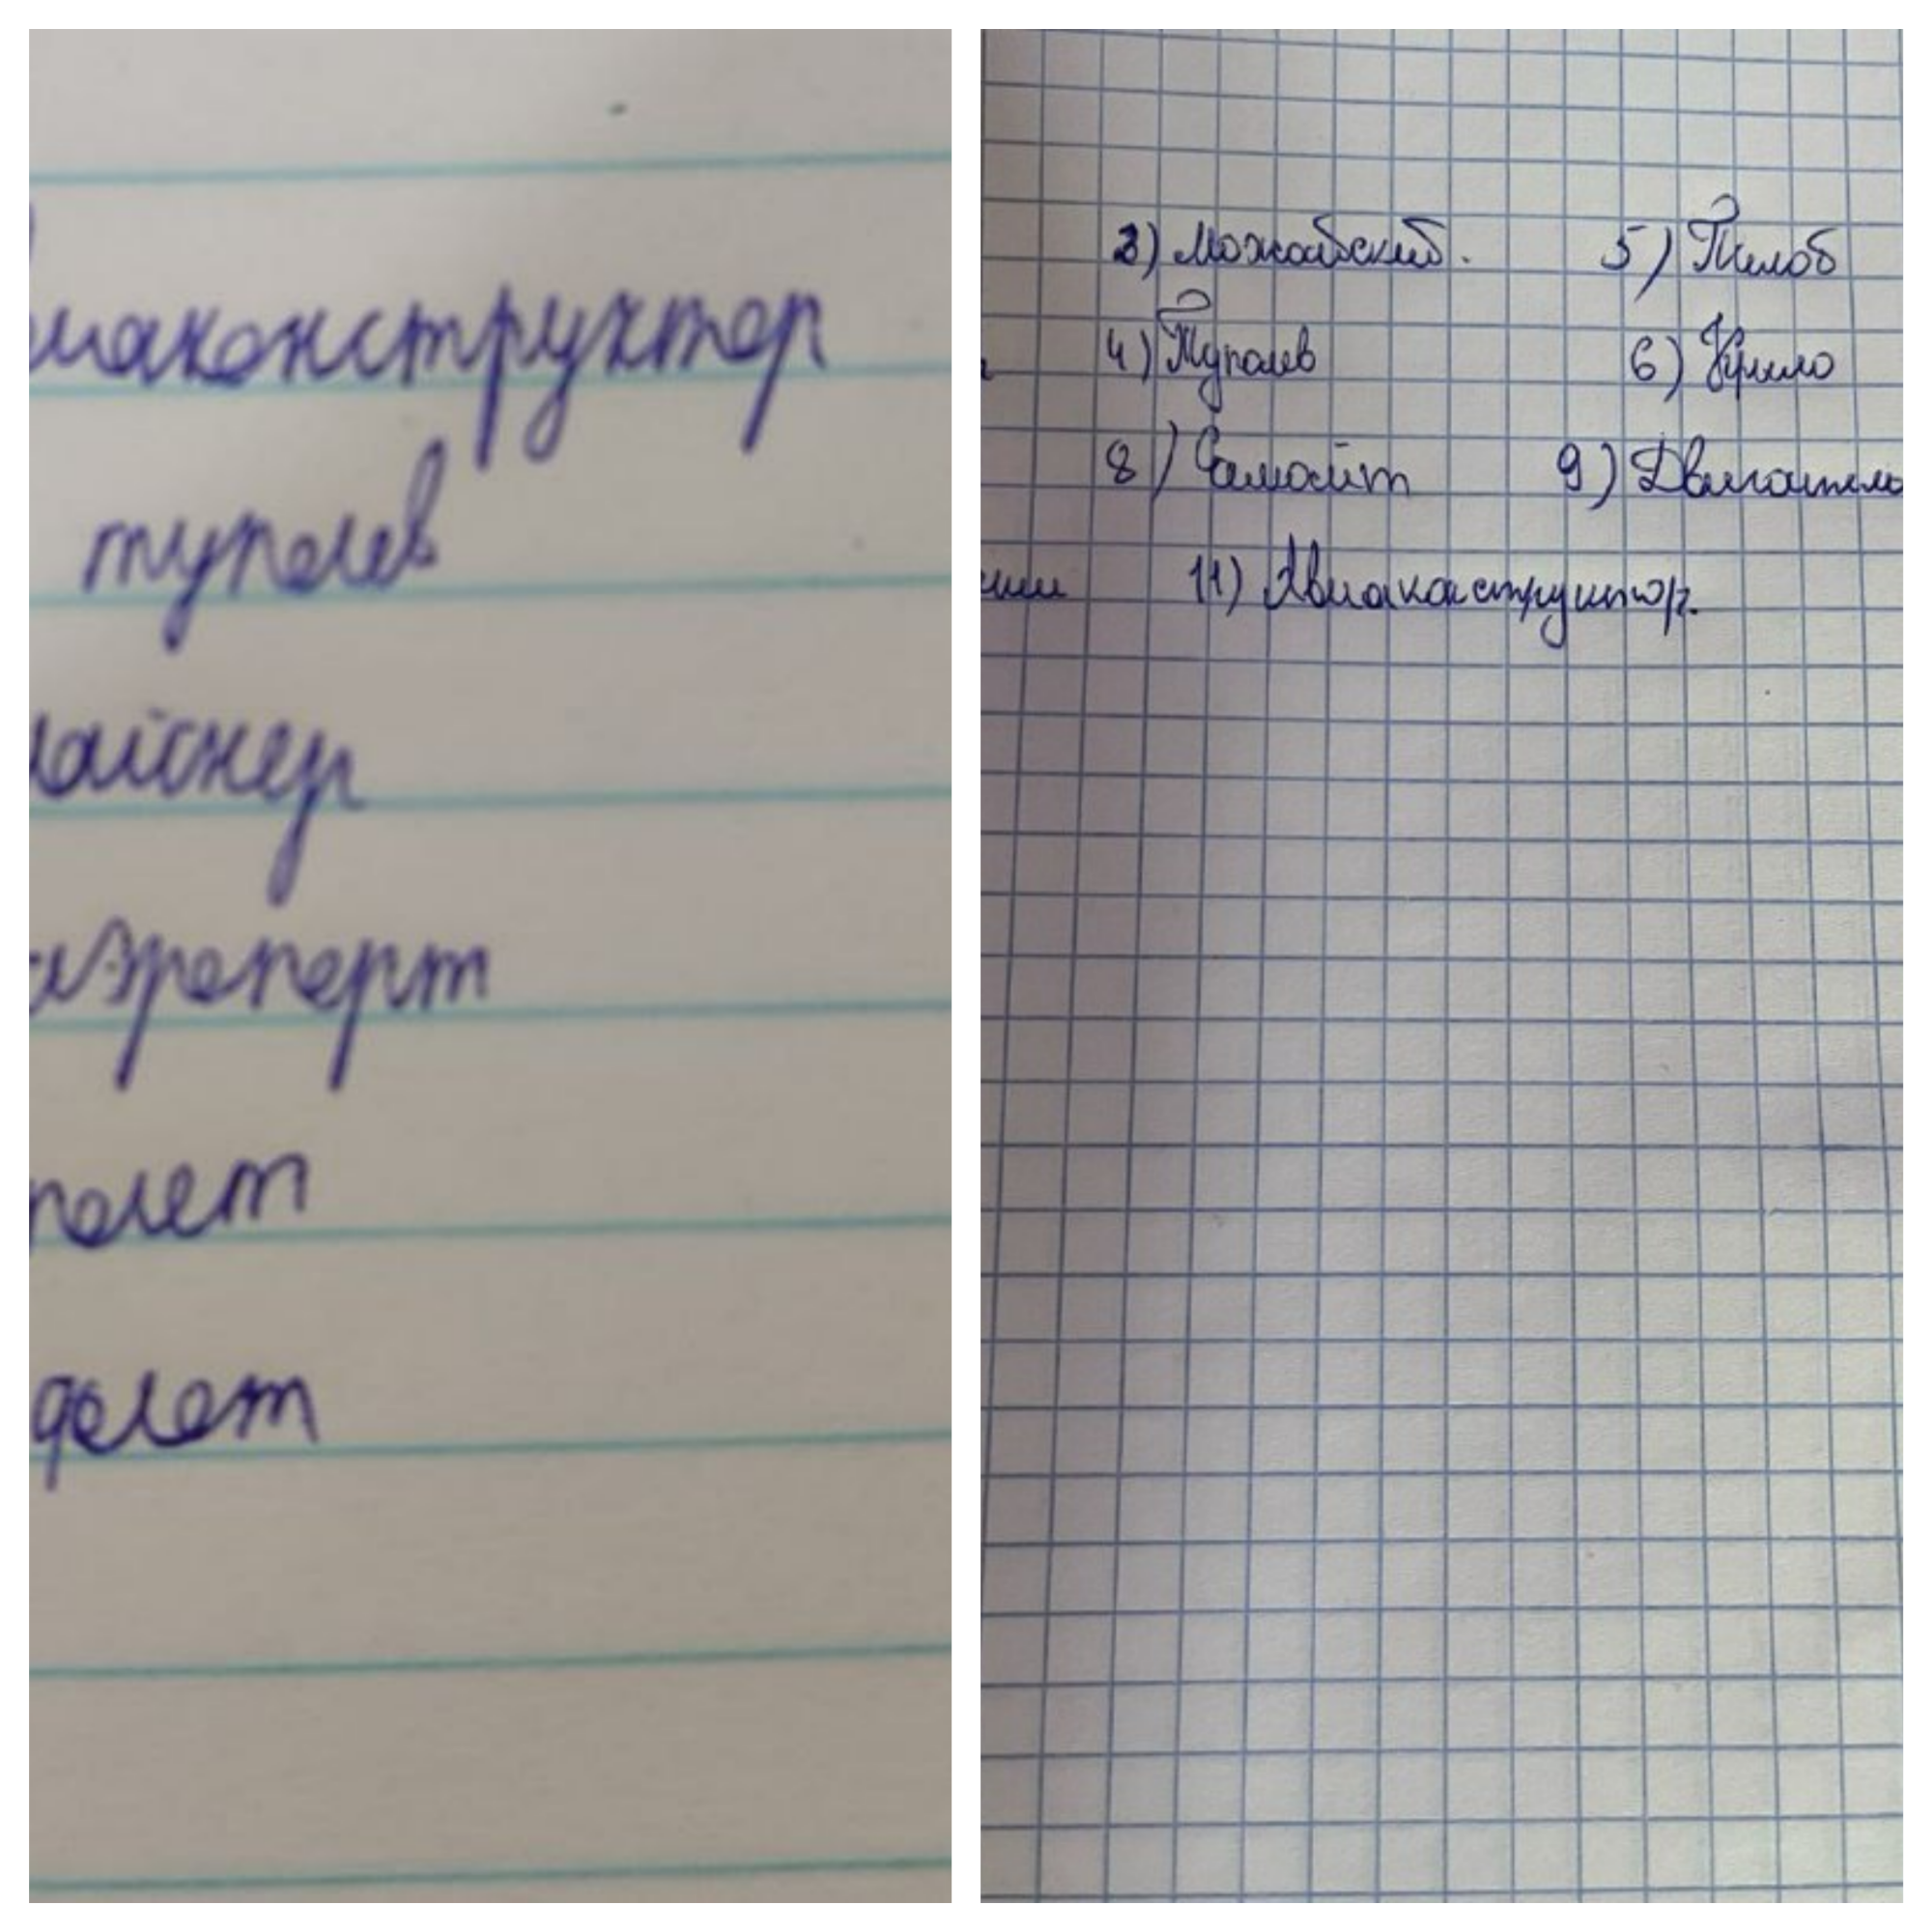 иаконструктор
туполев
лайнер
аэропорт
полет
долет
3) Можайский. 5) Пилоб
4) Туполев 6) Крыло
8) Самолёт 9) Двигатель
11) Авиаконструктор.